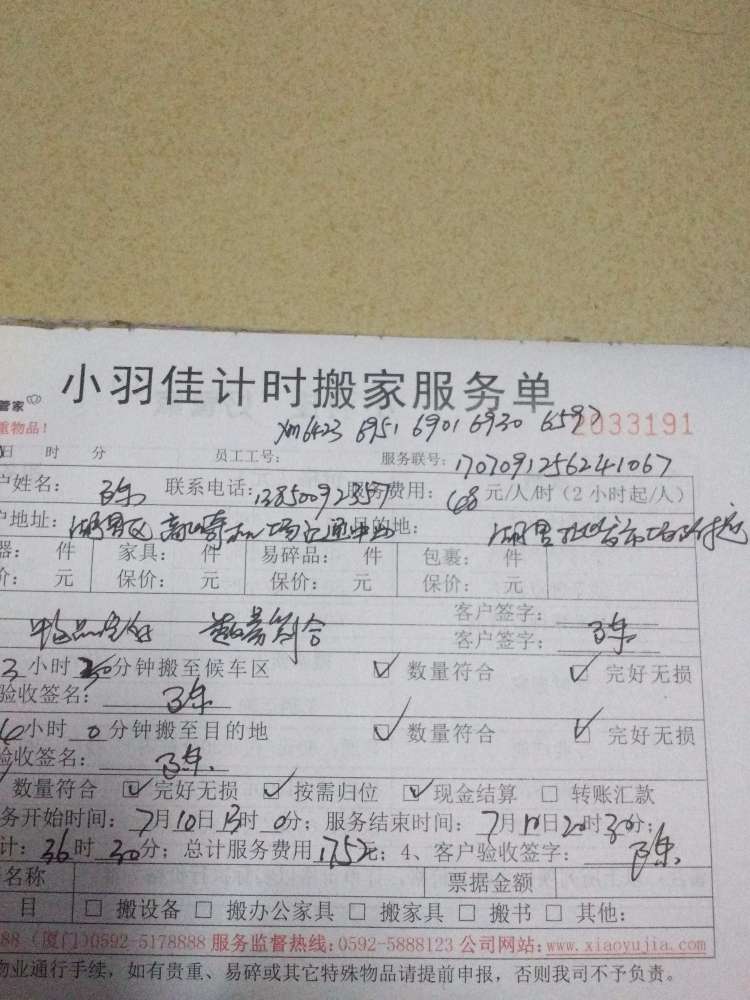 小羽佳计时搬家服务单
管家
重物品！
xm6423 6951 6901 6930 6597 2033191
日 时 分 员工工号： 服务联号：1707091256241067
户姓名： 联系电话：13850092357 服务费用：68元/人/时（2小时起/人）
户地址：湖里区高崎机场 目的地：湖里
器： 件 家具： 件 易碎品： 件 包裹： 件
价： 元 保价： 元 保价： 元 保价： 元
客户签字：
物品完好 数量符合 客户签字：
3小时30分钟搬至候车区 ☑ 数量符合 ☑ 完好无损
验收签名：
小时0分钟搬至目的地 ☑ 数量符合 ☑ 完好无损
验收签名：
数量符合 ☑ 完好无损 ☑ 按需归位 ☑ 现金结算 □ 转账汇款
务开始时间：7月10日13时0分；服务结束时间：7月10日20时30分；
计：36时30分；总计服务费用1752元；4、客户验收签字：
名称 票据金额
目 □ 搬设备 □ 搬办公家具 □ 搬家具 □ 搬书 □ 其他：
88（厦门)0592-5178888 服务监督热线：0592-5888123 公司网站：www.xiaoyujia.com
物业通行手续，如有贵重、易碎或其它特殊物品请提前申报，否则我司不予负责。